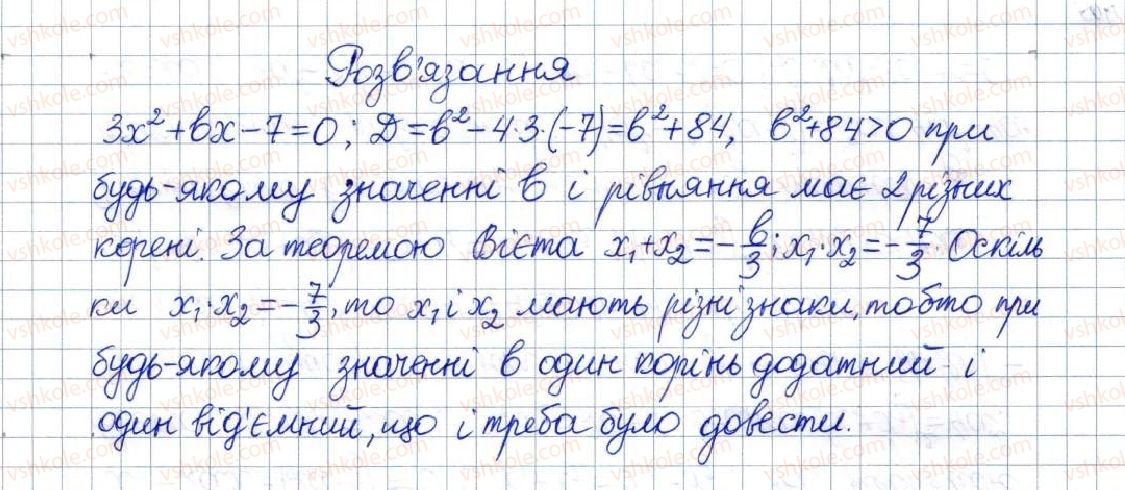 Розв'язання
3x²+bx-7=0; Д=b²-4·3·(-7)=b²+84, b²+84>0 при
будь-якому значенні b і рівняння має 2 різних
корені. За теоремою Вієта x₁+x₂=-b/3; x₁·x₂=-7/3. Оскіль
ки x₁·x₂=-7/3, то x₁ і x₂ мають різні знаки, тобто при
будь-якому значенні b один корінь додатний і
один від'ємний, що і треба було довести.